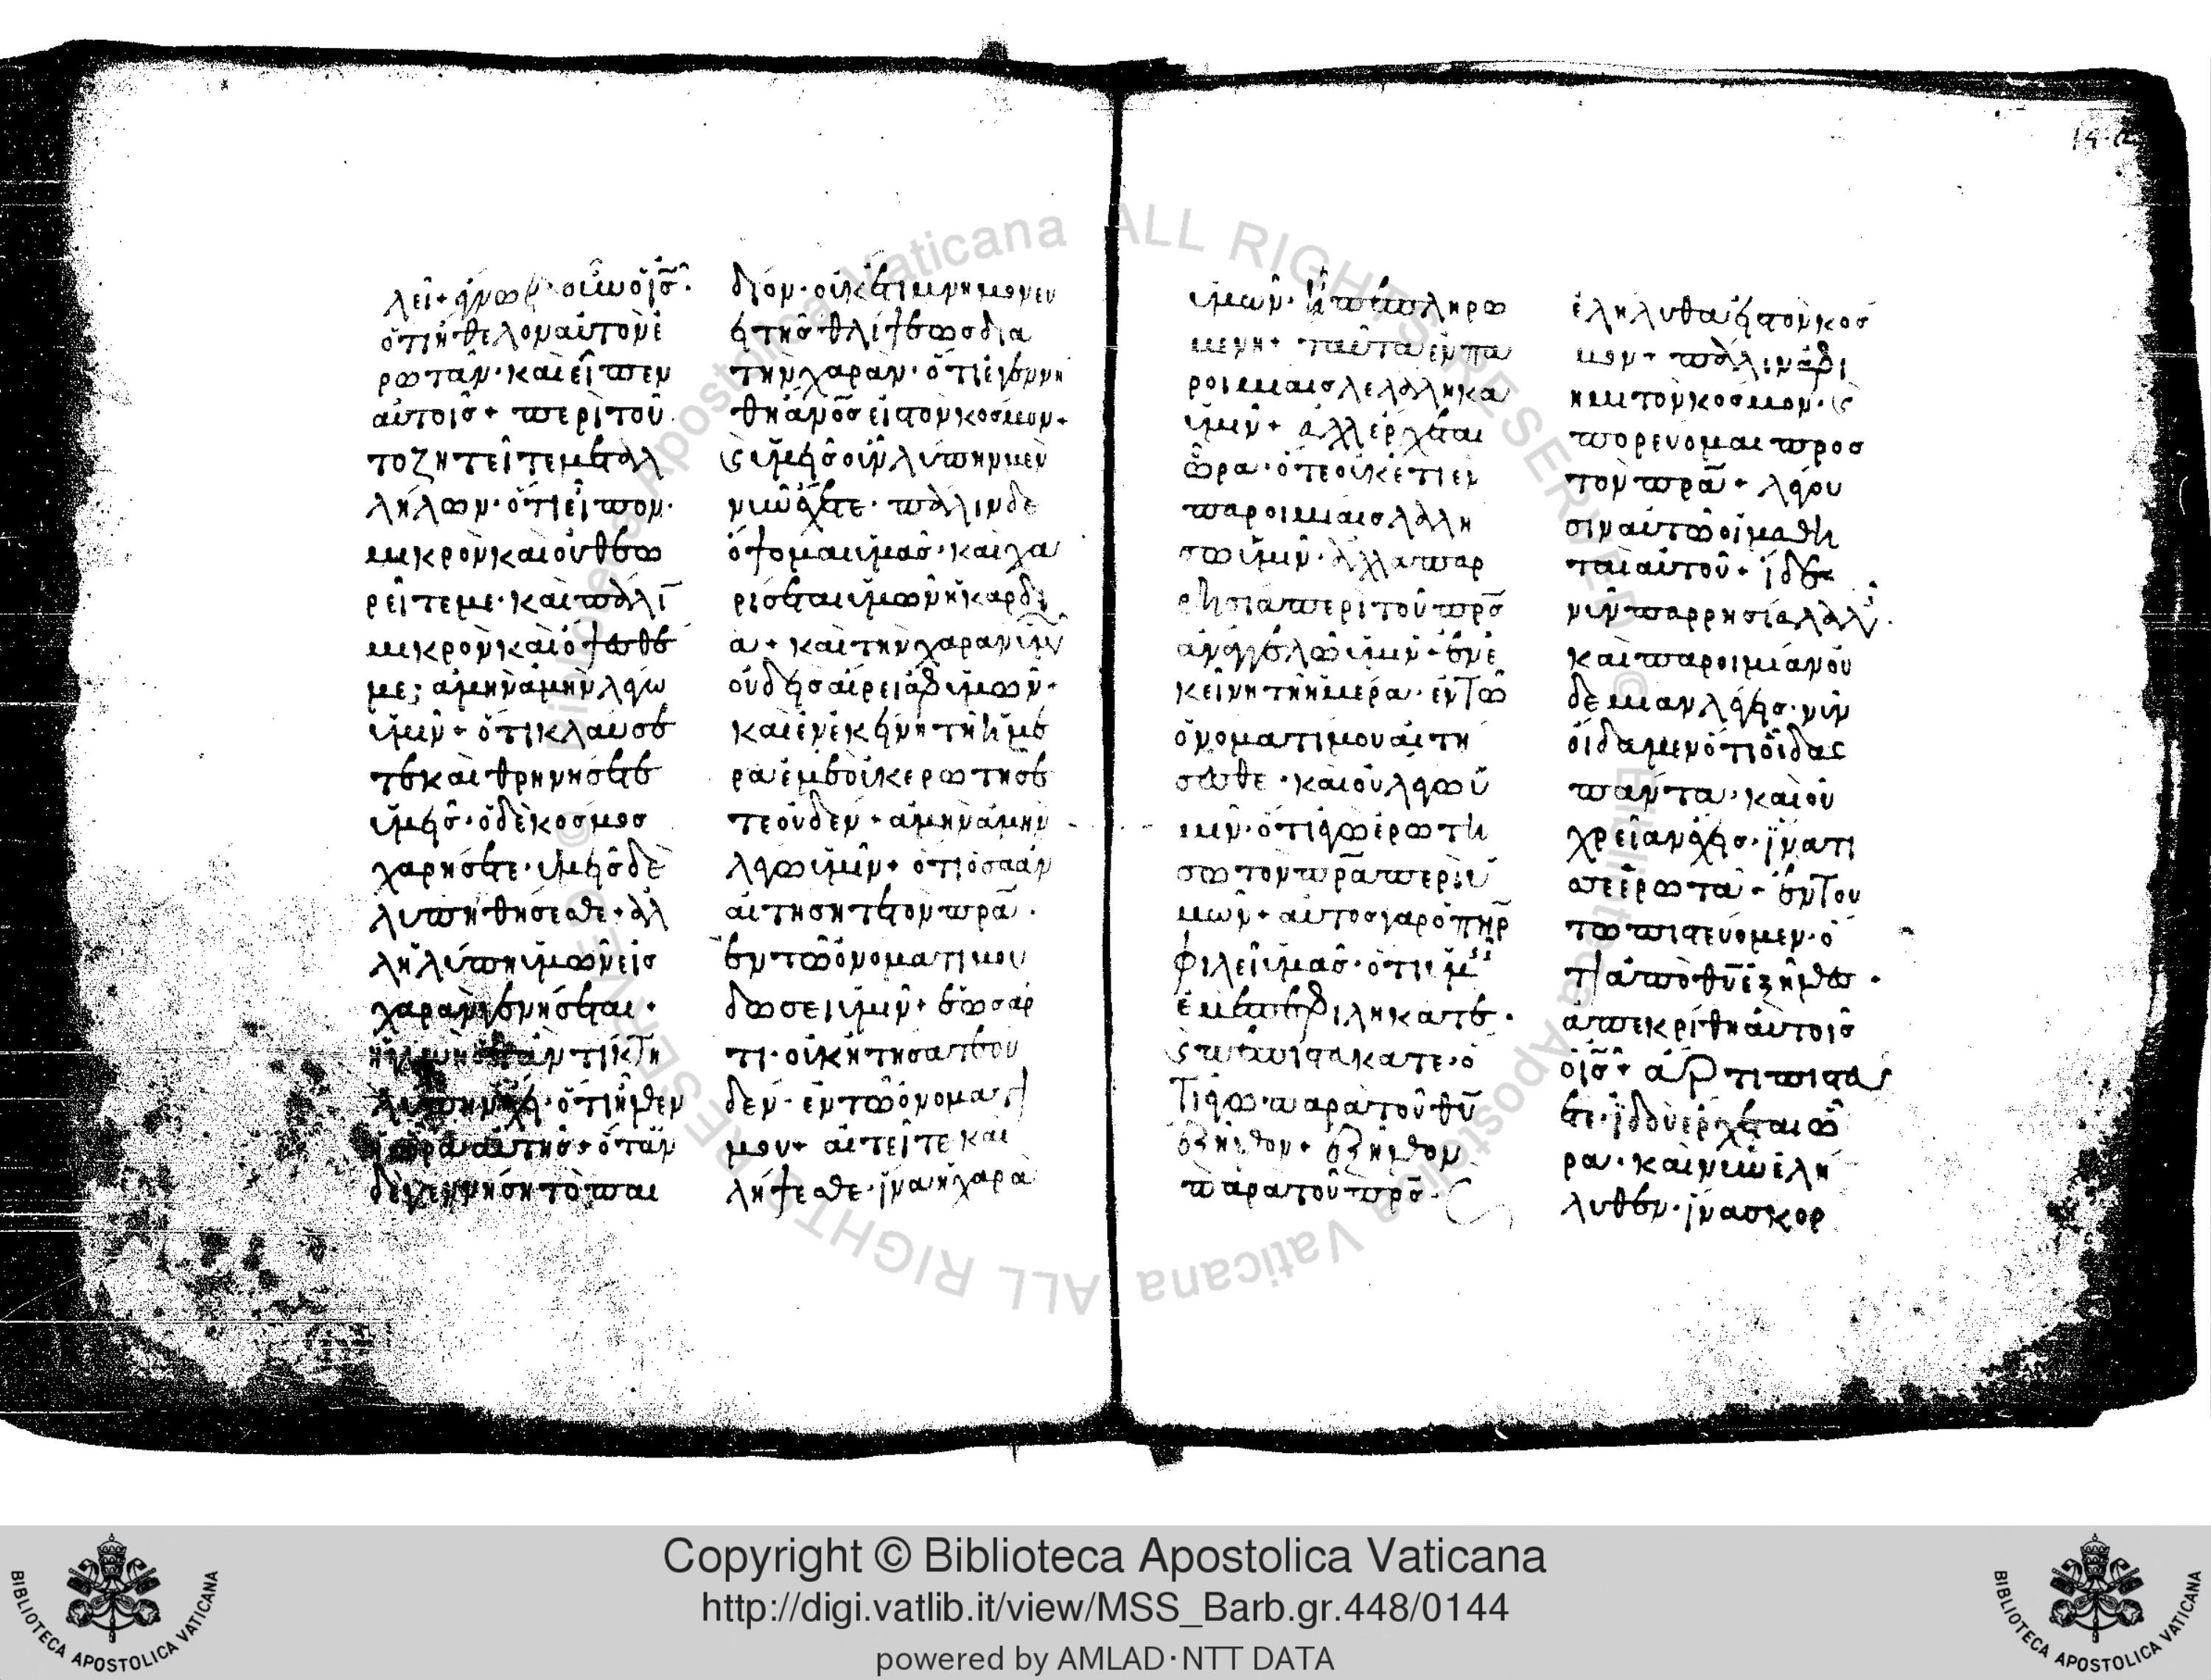 λεῖ· ἔγνω οὖν ὁ ἰς̅·
ὅτι ἤθελον αὐτὸν ἐ
ρωτᾶν· καὶ εἶπεν
αὐτοῖς· περὶ τού
το ζητεῖτε μετ ἀλ
λήλων· ὅτι εἶπον·
μικρὸν καὶ οὐ θεω
ρεῖτέ με· καὶ πάλι̅
μικρὸν καὶ ὄψεσθέ
με; ἀμὴν ἀμὴν λέγω
ὑμῖν· ὅτι κλαύσε
τε καὶ θρηνήσετε
ὑμεῖς· ὁ δὲ κόσμος
χαρήσεται· ὑμεῖς δὲ
λυπηθήσεσθε· ἀλ
λ ἡ λύπη ὑμῶν εἰς
χαρὰν γενήσεται·
ἡ γυνὴ ὅταν τίκτη
λύπην ἔχει· ὅτι ἦλθεν
ἡ ὥρα αὐτῆς· ὅταν
δὲ γεννήση τὸ παι
δίον· οὐκέτι μνημονεύ
ει τῆς θλίψεως διὰ
τὴν χαρὰν· ὅτι ἐγεννή
θη ἀνος̅ εἰς τὸν κόσμον·
ϛ ὑμεῖς οὖν λύπην μὲν
νῦν ἔχετε· πάλιν δὲ
ὄψομαι ὑμᾶς· καὶ χα
ρίσεται ὑμῶν ἡ καρδί
α· καὶ τὴν χαρὰν ὑμῶν
οὐδεὶς αἴρει ἀφ ὑμῶν·
καὶ ἐν ἐκείνη τῆ ἡμέ
ρα ἐμὲ οὐκ ἐρωτήσε
τε οὐδέν· ἀμὴν ἀμὴν
λέγω ὑμῖν· ὅτι ὅσα ἂν
αἰτήσητε τὸν πρα̅·
ἐν τῶ ὀνόματί μου
δώσει ὑμῖν· ἕως ἄρ
τι· οὐκ ἠτήσατε οὐ
δέν· ἐν τῶ ὀνόματί
μου· αἰτεῖτε καὶ
λήψεσθε· ἵνα ἡ χαρὰ
ὑμῶν· ἦ πεπληρω
μένη· ταῦτα ἐν πα
ροιμίαις λελάληκα
ὑμῖν· ἀλλ ἔρχεται
ὥρα· ὅτε οὐκέτι ἐν
παροιμίαις λαλή
σω ὑμῖν· ἀλλὰ παρ
ρησία περὶ τοῦ πρς̅
ἀναγγελῶ ὑμῖν· ἐν ἐ
κείνη τῆ ἡμέρα· ἐν τῶ
ὀνόματί μου αἰτή
σασθε· καὶ οὐ λέγω ὑ
μῖν· ὅτι ἐγὼ ἐρωτή
σω τὸν πρα̅ περὶ ὑ
μῶν· αὐτὸς γὰρ ὁ πηρ̅
φιλεῖ ὑμᾶς· ὅτι ὑμεῖς
ἐμὲ πεφιλήκατε·
ϛ πεπιστεύκατε· ὅ
τι ἐγὼ παρὰ τοῦ θυ̅
ἐξῆλθον· ἐξῆλθον
παρὰ τοῦ πρς̅· ϛ
ἐλήλυθα εἰς τὸν κόσ
μον· πάλιν ἀφί
ημι τὸν κόσμον· ϛ
πορεύομαι πρὸς
τὸν πρα̅· λέγου
σιν αὐτῶ οἱ μαθη
ταὶ αὐτοῦ· ἴδε
νῦν παρρησία λαλεῖς·
καὶ παροιμίαν οὐ
δεμίαν λέγεις· νῦν
οἴδαμεν ὅτι οἶδας
πάντα· καὶ οὐ
χρείαν ἔχεις· ἵνα τί
σε ἐρωτᾶ· ἐν τού
τω πιστεύομεν· ὅ
τι ἀπὸ θυ̅ ἐξῆλθες·
ἀπεκρίθη αὐτοῖς
ὁ ἰς̅· ἄρτι πιστεύ
ετε· ἰδοὺ ἔρχεται ὥ
ρα· καὶ νῦν ἐλή
λυθεν· ἵνα σκορ
Copyright © Biblioteca Apostolica Vaticana
http://digi.vatlib.it/view/MSS_Barb.gr.448/0144
powered by AMLAD·NTT DATA
BIBLIOTECA APOSTOLICA VATICANA
BIBLIOTECA APOSTOLICA VATICANA
© Biblioteca Apostolica Vaticana ALL RIGHTS RESERVED
© Biblioteca Apostolica Vaticana ALL RIGHTS RESERVED